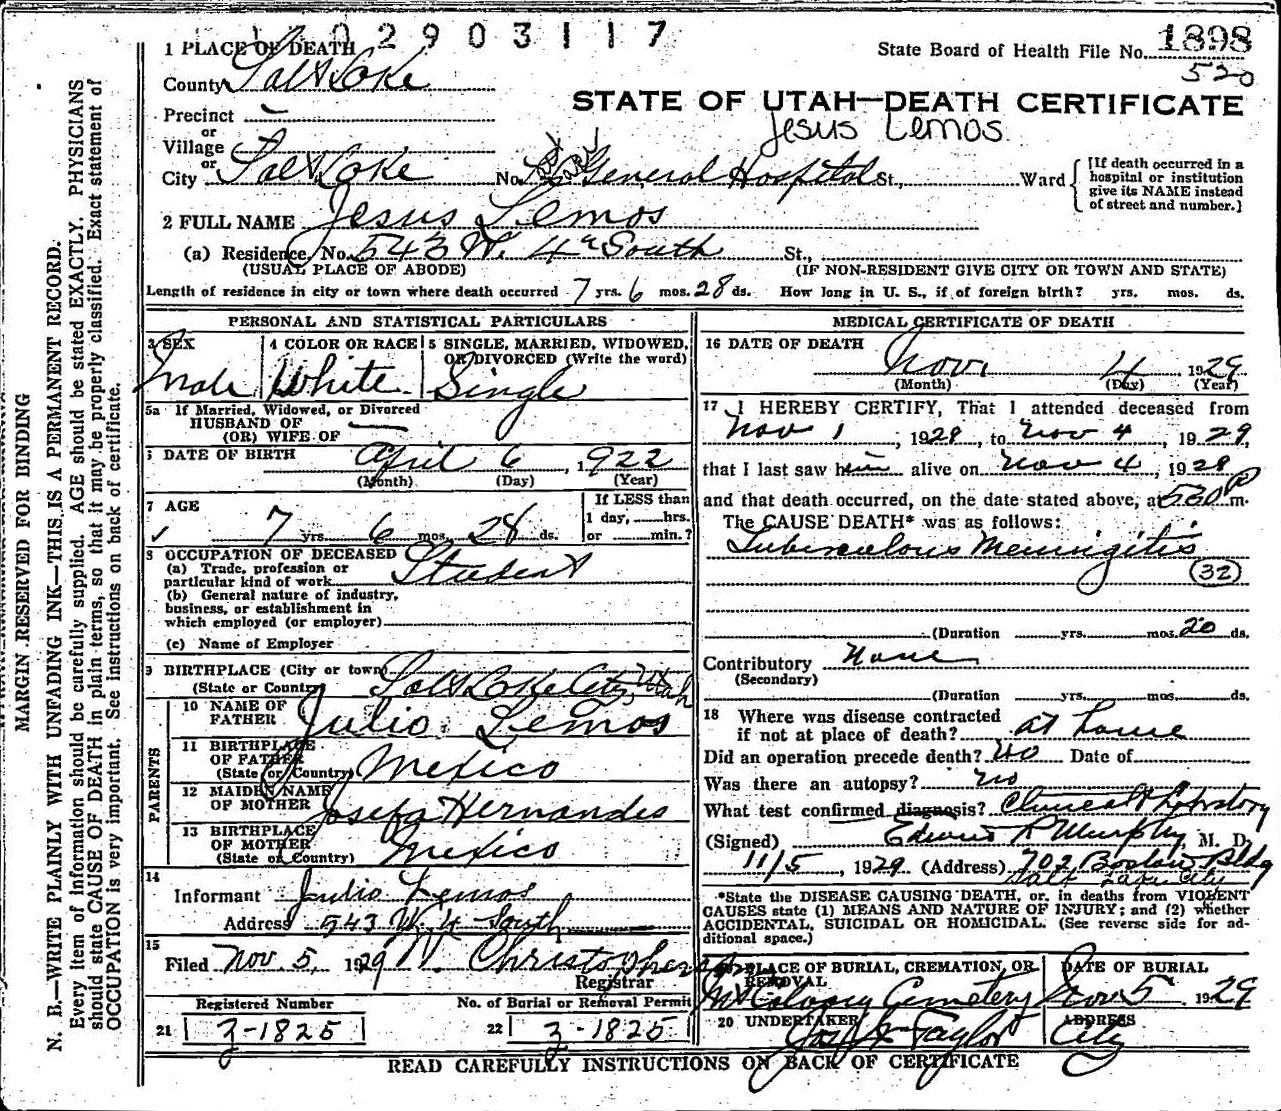 2903117
1 PLACE OF DEATH
State Board of Health File No. 1898
County Salt Lake
530
STATE OF UTAH—DEATH CERTIFICATE
Precinct —
Jesus Lemos
or
Village
or
City Salt Lake No. General Hospital St., Ward
[If death occurred in a hospital or institution give its NAME instead of street and number.]
2 FULL NAME Jesus Lemos
(a) Residence, No. 543 W. 4th South St.,
(USUAL PLACE OF ABODE) (IF NON-RESIDENT GIVE CITY OR TOWN AND STATE)
Length of residence in city or town where death occurred 7 yrs. 6 mos. 28 ds. How long in U. S., if of foreign birth? yrs. mos. ds.
PERSONAL AND STATISTICAL PARTICULARS
3 SEX
Male
4 COLOR OR RACE
White
5 SINGLE, MARRIED, WIDOWED, OR DIVORCED (Write the word)
Single
5a If Married, Widowed, or Divorced
HUSBAND OF
(OR) WIFE OF —
6 DATE OF BIRTH April 6, 1922
(Month) (Day) (Year)
7 AGE
7 yrs. 6 mos. 28 ds.
If LESS than
1 day, hrs.
or min.?
8 OCCUPATION OF DECEASED
(a) Trade, profession or
particular kind of work Student
(b) General nature of industry,
business, or establishment in
which employed (or employer)
(c) Name of Employer
9 BIRTHPLACE (City or town)
(State or Country) Salt Lake City, Utah
PARENTS
10 NAME OF
FATHER Julio Lemos
11 BIRTHPLACE
OF FATHER
(State or Country) Mexico
12 MAIDEN NAME
OF MOTHER Josefa Hernandes
13 BIRTHPLACE
OF MOTHER
(State or Country) Mexico
14
Informant Julio Lemos
Address 543 W. 4 South
15
Filed Nov. 5, 1929 W. Christopherson
Registrar
Registered Number No. of Burial or Removal Permit
21 3-1825 22 3-1825
MEDICAL CERTIFICATE OF DEATH
16 DATE OF DEATH
Nov. 4, 1929
(Month) (Day) (Year)
17 I HEREBY CERTIFY, That I attended deceased from
Nov 1, 1929, to Nov 4, 1929,
that I last saw him alive on Nov 4, 1929
and that death occurred, on the date stated above, at 530 P m.
The CAUSE DEATH* was as follows:
Tuberculous Meningitis
(32)
(Duration yrs. mos. 20 ds.
Contributory None
(Secondary)
(Duration yrs. mos. ds.
18 Where was disease contracted
if not at place of death? at home
Did an operation precede death? no Date of
Was there an autopsy? no
What test confirmed diagnosis? Clinical & Laboratory
(Signed) Edward R Murphy, M. D.
11/5, 1929 (Address) 702 Boston Bldg
Salt Lake City
*State the DISEASE CAUSING DEATH, or, in deaths from VIOLENT
CAUSES state (1) MEANS AND NATURE OF INJURY; and (2) whether
ACCIDENTAL, SUICIDAL OR HOMICIDAL. (See reverse side for ad-
ditional space.)
PLACE OF BURIAL, CREMATION, OR
REMOVAL
Mt Calvary Cemetery
DATE OF BURIAL
Nov 5 1929
20 UNDERTAKER
Taylor
ADDRESS
City
READ CAREFULLY INSTRUCTIONS ON BACK OF CERTIFICATE
MARGIN RESERVED FOR BINDING
N. B.—WRITE PLAINLY WITH UNFADING INK—THIS IS A PERMANENT RECORD.
Every item of information should be carefully supplied. AGE should be stated EXACTLY. PHYSICIANS
should state CAUSE OF DEATH in plain terms, so that it may be properly classified. Exact statement of
OCCUPATION is very important. See instructions on back of certificate.